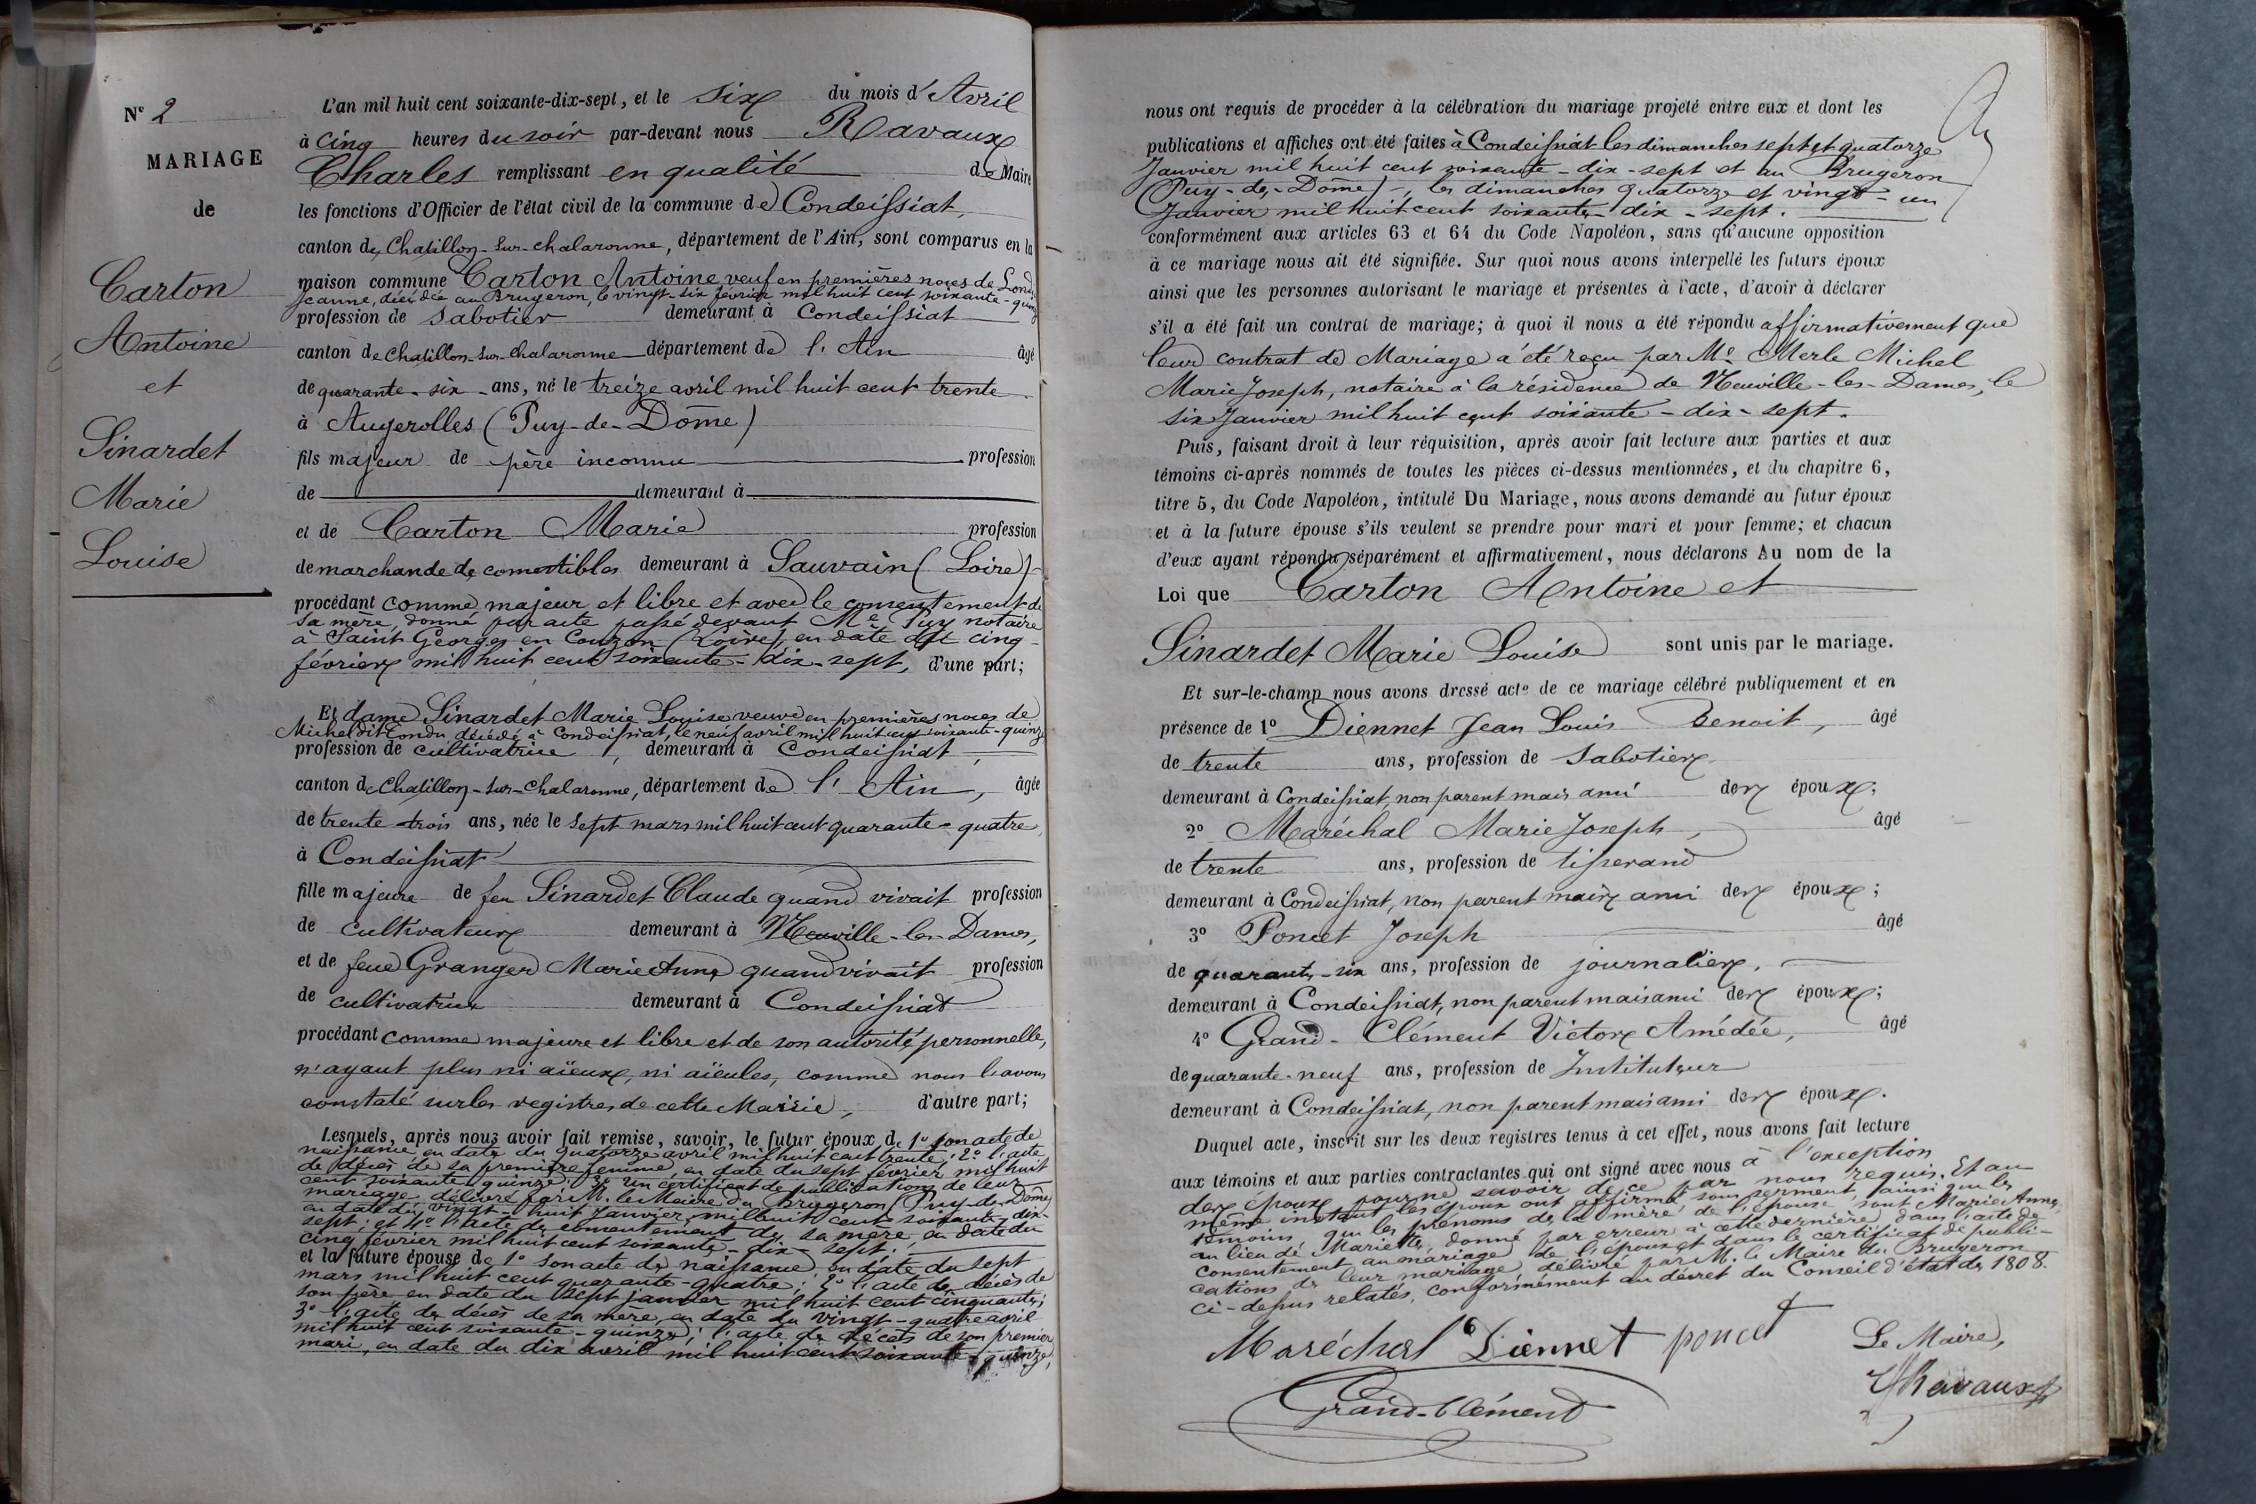 N° 2
MARIAGE
de
Carton
Antoine
et
Sinardet
Marie
Louise
L'an mil huit cent soixante-dix-sept, et le six du mois d'Avril
à cinq heures du soir par-devant nous Ravaux
Charles remplissant en qualité de Maire
les fonctions d'Officier de l'état civil de la commune de Condeissiat,
canton de Chatillon-sur-chalaronne, département de l'Ain, sont comparus en la
maison commune Carton Antoine veuf en premières noces de
Jeanne, décédée au Brugeron, le vingt-six février mil huit cent soixante-quinze
profession de sabotier demeurant à Condeissiat
canton de Chatillon-sur-chalaronne département de l'Ain âgé
de quarante-six ans, né le treize avril mil huit cent trente
à Augerolles (Puy-de-Dôme)
fils majeur de père inconnu profession
de demeurant à
et de Carton Marie profession
de marchande de comestibles demeurant à Sauvain (Loire)
procédant comme majeur et libre et avec le consentement de
sa mère, donné par acte passé devant Me Puy notaire
à Saint Georges en Couzon (Loire), en date du cinq
février mil huit cent soixante-dix-sept, d'une part;
Et dame Sinardet Marie Louise veuve en premières noces de
Michel dit Condu décédé à Condeissiat, le neuf avril mil huit cent soixante-quinze
profession de cultivatrice, demeurant à Condeissiat,
canton de Chatillon-sur-Chalaronne, département de l'Ain, âgée
de trente-trois ans, née le sept mars mil huit cent quarante-quatre
à Condeissiat
fille majeure de feu Sinardet Claude quand vivait profession
de cultivateur demeurant à Neuville-les-Dames,
et de feue Granger Marie Anne quand vivait profession
de cultivatrice demeurant à Condeissiat
procédant comme majeure et libre et de son autorité personnelle,
n'ayant plus ni aïeux, ni aïeules, comme nous l'avons
constaté sur les registres de cette Mairie, d'autre part;
Lesquels, après nous avoir fait remise, savoir, le futur époux de 1° son acte de
naissance en date du quatorze avril mil huit cent trente; 2° l'acte
de décès de sa première femme, en date du sept février mil huit
cent soixante quinze; 3° Un certificat de publications de leur
mariage délivré par M. le Maire du Brugeron (Puy-de-Dôme)
en date du vingt-huit Janvier, mil huit cent soixante-dix-
sept; et 4° l'acte de consentement de sa mère en date du
cinq février mil huit cent soixante-dix-sept;
et la future épouse de 1° son acte de naissance en date du sept
mars mil huit cent quarante-quatre; 2° l'acte de décès de
son père en date du sept janvier mil huit cent cinquante;
3° l'acte de décès de sa mère, en date du vingt-quatre avril
mil huit cent soixante-quinze; l'acte de décès de son premier
mari, en date du dix avril mil huit cent soixante-quinze,
nous ont requis de procéder à la célébration du mariage projeté entre eux et dont les
publications et affiches ont été faites à Condeissiat les dimanches sept et quatorze
Janvier mil huit cent soixante-dix-sept et au Brugeron
(Puy-de-Dôme), les dimanches quatorze et vingt-un
Janvier mil huit cent soixante-dix-sept.
conformément aux articles 63 et 64 du Code Napoléon, sans qu'aucune opposition
à ce mariage nous ait été signifiée. Sur quoi nous avons interpellé les futurs époux
ainsi que les personnes autorisant le mariage et présentes à l'acte, d'avoir à déclarer
s'il a été fait un contrat de mariage; à quoi il nous a été répondu affirmativement que
leur contrat de Mariage a été reçu par Me Merle Michel
Marie Joseph, notaire à la résidence de Neuville-les-Dames, le
six Janvier mil huit cent soixante-dix-sept.
Puis, faisant droit à leur réquisition, après avoir fait lecture aux parties et aux
témoins ci-après nommés de toutes les pièces ci-dessus mentionnées, et du chapitre 6,
titre 5, du Code Napoléon, intitulé Du Mariage, nous avons demandé au futur époux
et à la future épouse s'ils veulent se prendre pour mari et pour femme; et chacun
d'eux ayant répondu séparément et affirmativement, nous déclarons Au nom de la
Loi que Carton Antoine et
Sinardet Marie Louise sont unis par le mariage.
Et sur-le-champ nous avons dressé acte de ce mariage célébré publiquement et en
présence de 1° Diennet Jean Louis Benoit, âgé
de trente ans, profession de Sabotier
demeurant à Condeissiat, non parent mais ami des époux;
2° Maréchal Marie Joseph, âgé
de trente ans, profession de tisserand
demeurant à Condeissiat, non parent mais ami des époux;
3° Poncet Joseph âgé
de quarante-six ans, profession de journalier,
demeurant à Condeissiat, non parent mais ami des époux;
4° Grand-Clément Victor Amédée, âgé
de quarante-neuf ans, profession de Instituteur
demeurant à Condeissiat, non parent mais ami des époux.
Duquel acte, inscrit sur les deux registres tenus à cet effet, nous avons fait lecture
aux témoins et aux parties contractantes qui ont signé avec nous à l'exception
des époux pour ne savoir de ce par nous requis. Et au
même instant les époux ont affirmé sous serment, ainsi que les
témoins que les prénoms de la mère de l'épouse sont Marie Anne,
au lieu de Mariette, donné par erreur à cette dernière dans l'acte de
consentement au mariage de l'époux et dans le certificat de publi-
cations de leur mariage délivré par M. le Maire du Brugeron
ci-dessus relatés, conformément au décret du Conseil d'état de 1808.
Maréchal Diennet poncet Le Maire,
Grand-Clément Ravaux